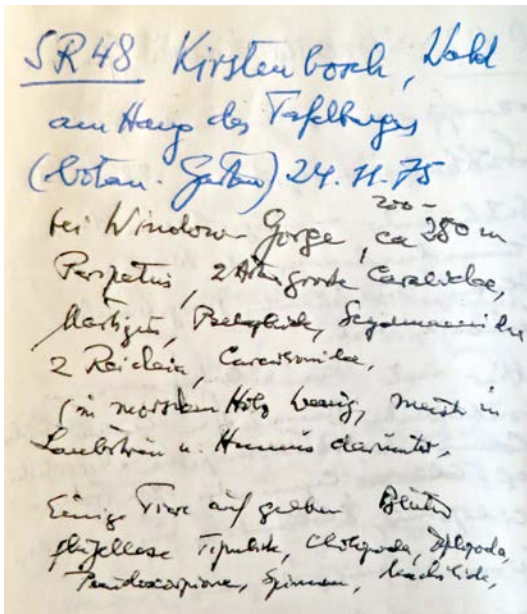 SR48 Kirstenbosch, Wald
am Hang des Tafelberges
(botan. Garten) 24.11.75
200-
bei Window Gorge, ca 280 m
Peripatus, 2 Arten große Carabidae,
Mastiginae, Pselaphidae, Scydmaenidae
2 Reicheia,
in morschem Holz wenig, meist in
Laubstreu u. Humus darunter.
Einige Tiere auf gelben Blüten
flügellose Tipulide, Chilopoda, Diplopoda,
Pseudoscorpione, Spinnen, Machilide,